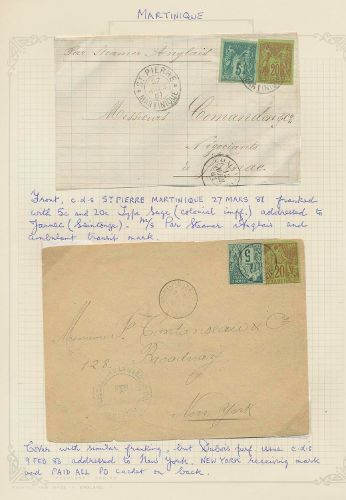 MARTINIQUE
Par Steamer Anglais
ST PIERRE
27
MARS
81
MARTINIQUE
5
20
Messieurs Comandon & Cie
Négociants
à Jarnac
Front, c.d.s ST PIERRE MARTINIQUE 27 MARS 81 franked
with 5c and 20c Type Sage (colonial imperf.) addressed to
Jarnac (Saintonge). M/S Par Steamer Anglais and
ambulant transit mark.
5
20
Messieurs F.
128. Broadway
New York
Cover with similar franking, but Dubois perf. issue c.d.s
9 FEB 83 addressed to New York. NEW YORK receiving mark
and PAID ALL PO cachet on back.